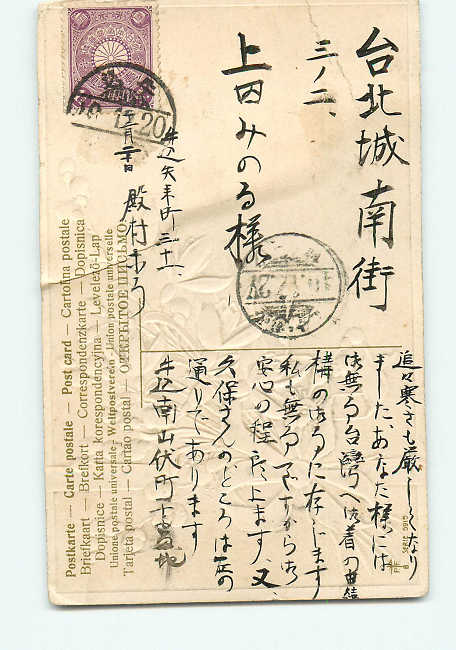 台北城南街
三ノ二、
上田みのる様
牛込矢来町三十一、
十二月二十日
殿村
追々寒さも厳しくなり
ました、あなた様には
御無事台湾へ御着の由結
構の御事に存じます
私も無事ですから御
安心の程願上ます、又、
久保さんのところは左の
通りであります
牛込南山伏町
Postkarte — Carte postale — Post card — Cartolina postale
Briefkaart — Brefkort — Correspondenzkarte — Dopisnica
Dopisnice — Karta korespondencyjna — Levelező-Lap
Unione postale universale — Weltpostverein — Union postale universelle
Tarjeta postal — Cartao postal — ОТКРЫТОЕ ПИСЬМО